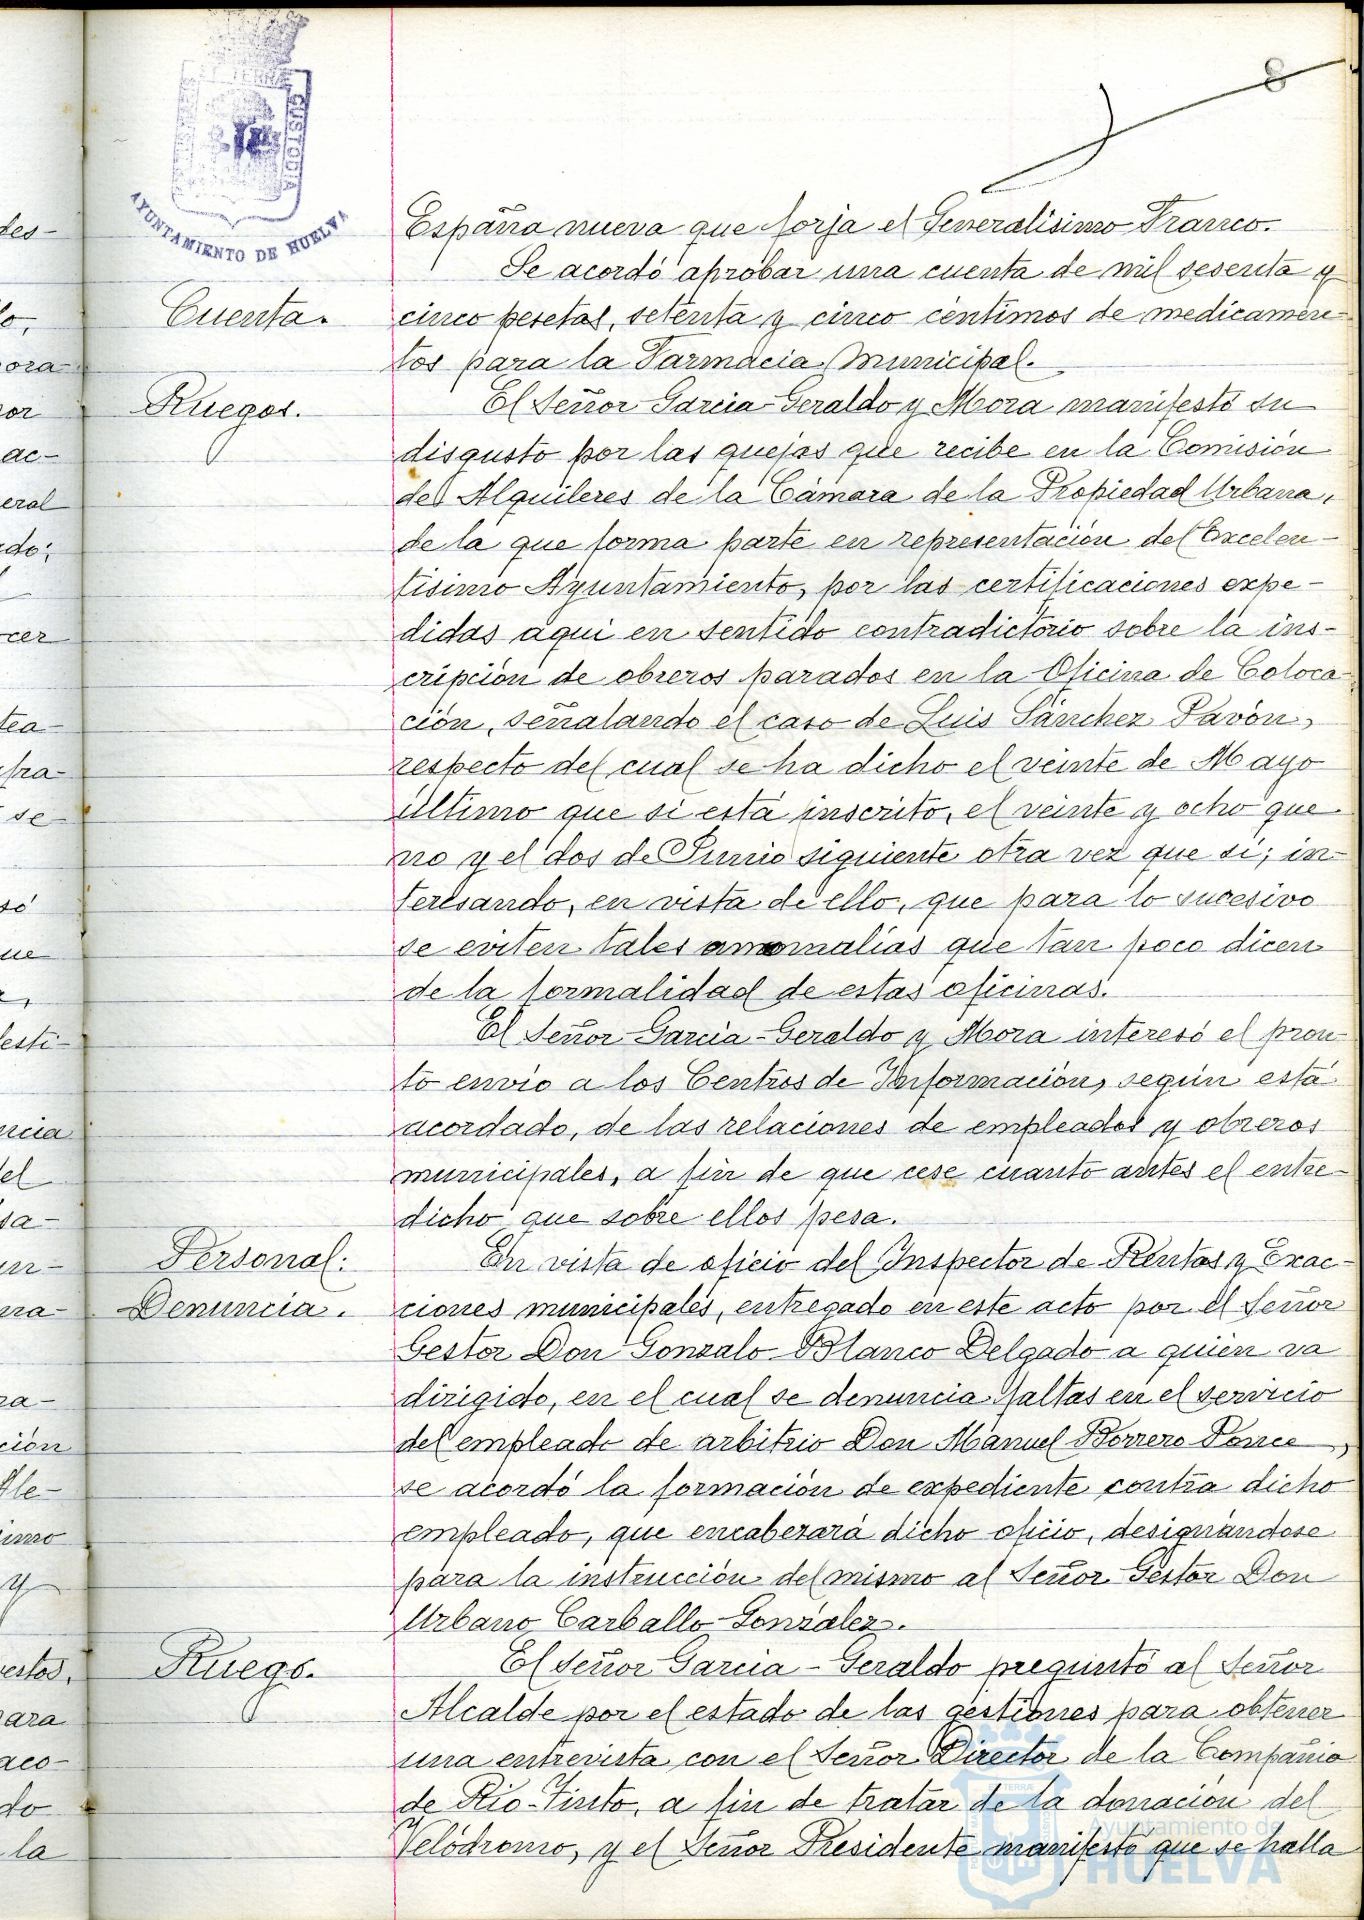 8
TERRÆ
CUSTODIA
AYUNTAMIENTO DE HUELVA
España nueva que forja el Generalísimo Franco.
Se acordó aprobar una cuenta de mil sesenta y
Cuenta.
cinco pesetas, setenta y cinco céntimos de medicamen-
tos para la Farmacia Municipal.
Ruegos.
El Señor García-Geraldo y Mora manifestó su
disgusto por las quejas que recibe en la Comisión
de Alquileres de la Cámara de la Propiedad Urbana,
de la que forma parte en representación del Excelen-
tisimo Ayuntamiento, por las certificaciones expe-
didas aqui en sentido contradictorio sobre la ins-
cripción de obreros parados en la Oficina de Coloca-
ción, señalando el caso de Luis Sánchez Pavón,
respecto del cual se ha dicho el veinte de Mayo
último que si está inscrito, el veinte y ocho que
no y el dos de Junio siguiente otra vez que sí; in-
teresando, en vista de ello, que para lo sucesivo
se eviten tales anomalías que tan poco dicen
de la formalidad de estas oficinas.
El Señor García-Geraldo y Mora interesó el pron-
to envío a los Centros de Información, según está
acordado, de las relaciones de empleados y obreros
municipales, a fin de que cese cuanto antes el entre-
dicho que sobre ellos pesa.
Personal:
Denuncia.
En vista de oficio del Inspector de Rentas y Exac-
ciones municipales, entregado en este acto por el Señor
Gestor Don Gonzalo Blanco Delgado a quién va
dirigido, en el cual se denuncia faltas en el servicio
del empleado de arbitrio Don Manuel Borrero Ponce,
se acordó la formación de expediente contra dicho
empleado, que encabezará dicho oficio, designándose
para la instrucción del mismo al Señor Gestor Don
Urbano Carballo González.
Ruego.
El Señor García-Geraldo preguntó al Señor
Alcalde por el estado de las gestiones para obtener
una entrevista con el Señor Director de la Compañia
de Río-Tinto, a fin de tratar de la donación del
Velódromo, y el Señor Presidente manifestó que se halla
Ayuntamiento de
HUELVA